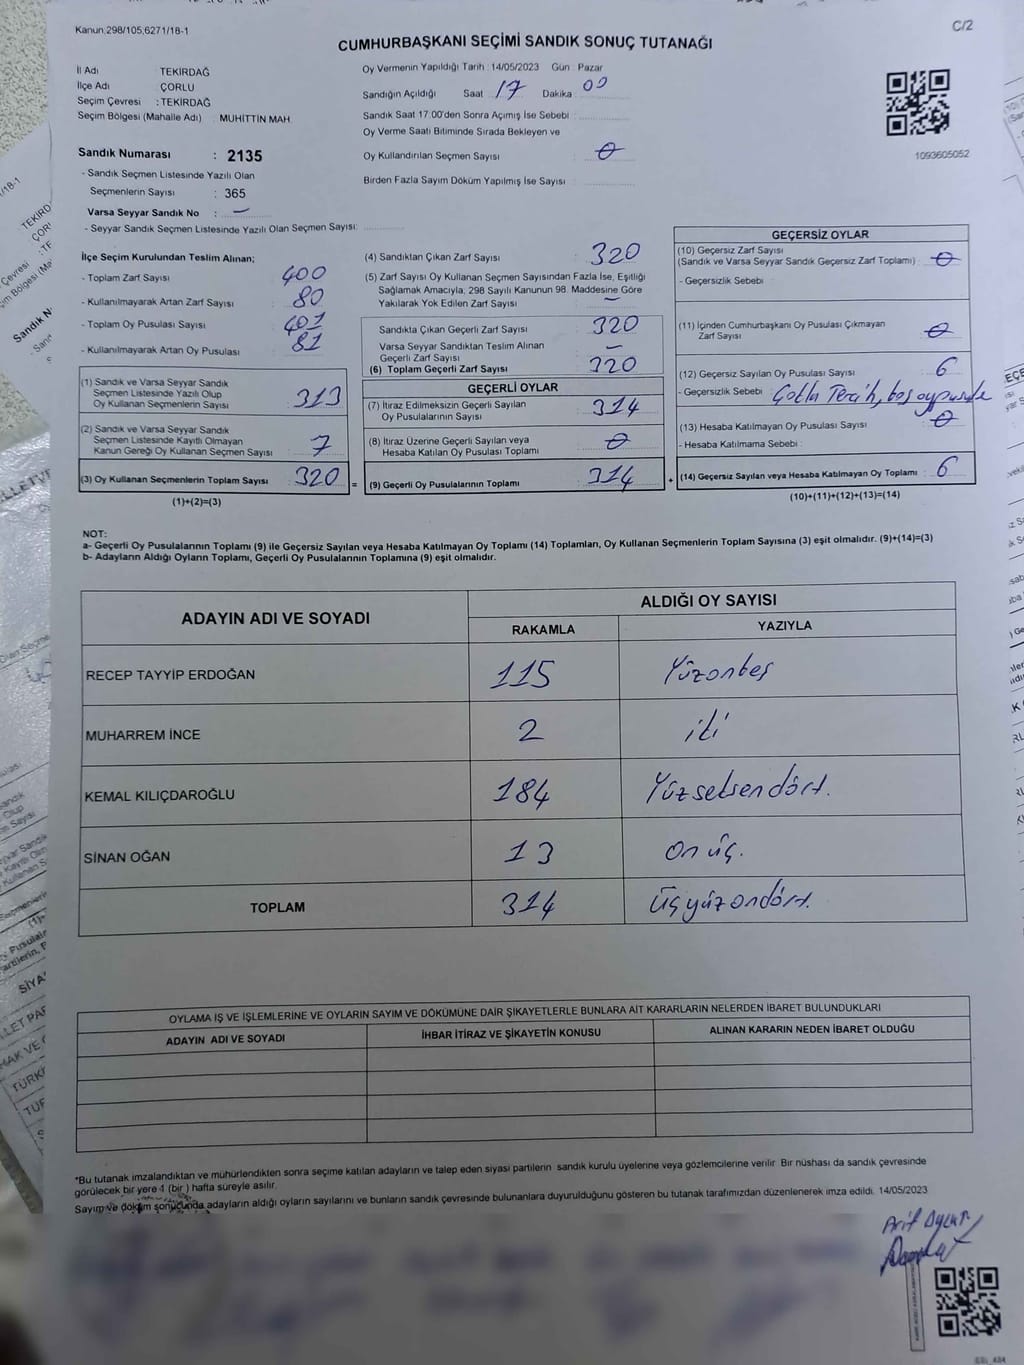 Kanun:298/105,6271/18-1
C/2
CUMHURBAŞKANI SEÇİMİ SANDIK SONUÇ TUTANAĞI
İl Adı TEKİRDAĞ
İlçe Adı ÇORLU
Seçim Çevresi : TEKİRDAĞ
Seçim Bölgesi (Mahalle Adı) MUHİTTİN MAH.
Oy Vermenin Yapıldığı Tarih : 14/05/2023 Gün : Pazar
Sandığın Açıldığı Saat 17 Dakika 00
Sandık Saat 17.00'den Sonra Açılmış İse Sebebi
Oy Verme Saati Bitiminde Sırada Bekleyen ve
Oy Kullandırılan Seçmen Sayısı : 0
Birden Fazla Sayım Döküm Yapılmış İse Sayısı :
1093605052
Sandık Numarası : 2135
- Sandık Seçmen Listesinde Yazılı Olan
Seçmenlerin Sayısı : 365
Varsa Seyyar Sandık No : —
- Seyyar Sandık Seçmen Listesinde Yazılı Olan Seçmen Sayısı:
İlçe Seçim Kurulundan Teslim Alınan;
- Toplam Zarf Sayısı 400
- Kullanılmayarak Artan Zarf Sayısı 80
- Toplam Oy Pusulası Sayısı 401
- Kullanılmayarak Artan Oy Pusulası 81
(1) Sandık ve Varsa Seyyar Sandık
Seçmen Listesinde Yazılı Olup
Oy Kullanan Seçmenlerin Sayısı 313
(2) Sandık ve Varsa Seyyar Sandık
Seçmen Listesinde Kayıtlı Olmayan
Kanun Gereği Oy Kullanan Seçmen Sayısı 7
(3) Oy Kullanan Seçmenlerin Toplam Sayısı 320 =
(1)+(2)=(3)
(4) Sandıktan Çıkan Zarf Sayısı : 320
(5) Zarf Sayısı Oy Kullanan Seçmen Sayısından Fazla İse, Eşitliği
Sağlamak Amacıyla, 298 Sayılı Kanunun 98. Maddesine Göre
Yakılarak Yok Edilen Zarf Sayısı —
Sandıkta Çıkan Geçerli Zarf Sayısı 320
Varsa Seyyar Sandıktan Teslim Alınan
Geçerli Zarf Sayısı —
(6) Toplam Geçerli Zarf Sayısı 320
GEÇERLİ OYLAR
(7) İtiraz Edilmeksizin Geçerli Sayılan
Oy Pusulalarının Sayısı 314
(8) İtiraz Üzerine Geçerli Sayılan veya
Hesaba Katılan Oy Pusulası Toplamı 0
(9) Geçerli Oy Pusulalarının Toplamı 314 +
GEÇERSİZ OYLAR
(10) Geçersiz Zarf Sayısı
(Sandık ve Varsa Seyyar Sandık Geçersiz Zarf Toplamı) 0
- Geçersizlik Sebebi
(11) İçinden Cumhurbaşkanı Oy Pusulası Çıkmayan
Zarf Sayısı 0
(12) Geçersiz Sayılan Oy Pusulası Sayısı 6
- Geçersizlik Sebebi Çoklu Tercih, boş oy pusula
(13) Hesaba Katılmayan Oy Pusulası Sayısı 0
- Hesaba Katılmama Sebebi :
(14) Geçersiz Sayılan veya Hesaba Katılmayan Oy Toplamı 6
(10)+(11)+(12)+(13)=(14)
NOT:
a- Geçerli Oy Pusulalarının Toplamı (9) ile Geçersiz Sayılan veya Hesaba Katılmayan Oy Toplamı (14) Toplamları, Oy Kullanan Seçmenlerin Toplam Sayısına (3) eşit olmalıdır. (9)+(14)=(3)
b- Adayların Aldığı Oyların Toplamı, Geçerli Oy Pusulalarının Toplamına (9) eşit olmalıdır.
ADAYIN ADI VE SOYADI ALDIĞI OY SAYISI
RAKAMLA YAZIYLA
RECEP TAYYİP ERDOĞAN 115 Yüzonbeş
MUHARREM İNCE 2 iki
KEMAL KILIÇDAROĞLU 184 Yüzseksendört.
SİNAN OĞAN 13 on üç.
TOPLAM 314 Üçyüzondört.
OYLAMA İŞ VE İŞLEMLERİNE VE OYLARIN SAYIM VE DÖKÜMÜNE DAİR ŞİKAYETLERLE BUNLARA AİT KARARLARIN NELERDEN İBARET BULUNDUKLARI
ADAYIN ADI VE SOYADI İHBAR İTİRAZ VE ŞİKAYETİN KONUSU ALINAN KARARIN NEDEN İBARET OLDUĞU
*Bu tutanak imzalandıktan ve mühürlendikten sonra seçime katılan adayların ve talep eden siyasi partilerin sandık kurulu üyelerine veya gözlemcilerine verilir. Bir nüshası da sandık çevresinde
görülecek bir yere 1 (bir) hafta süreyle asılır.
Sayım ve döküm sonucunda adayların aldığı oyların sayılarını ve bunların sandık çevresinde bulunanlara duyurulduğunu gösteren bu tutanak tarafımızdan düzenlenerek imza edildi. 14/05/2023